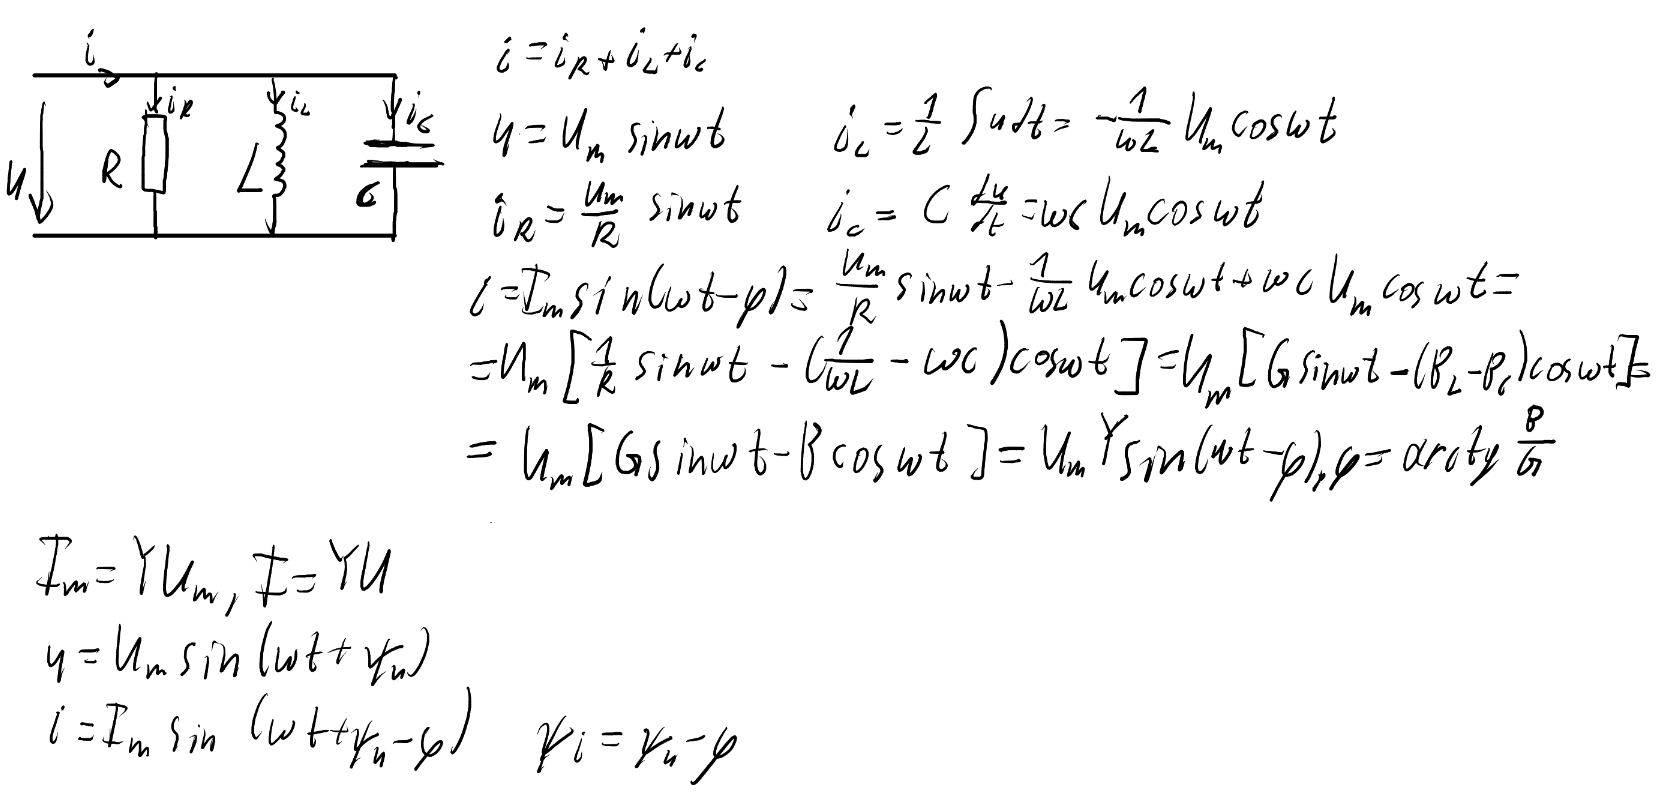 i
i_R
i_L
i_C
u
R
L
C
i = i_R + i_L + i_C
u = U_m sin ωt
i_L = 1/L ∫ u dt = - 1/ωL U_m cos ωt
i_R = U_m/R sin ωt
i_C = C du/dt = ωC U_m cos ωt
i = I_m sin(ωt - φ) = U_m/R sin ωt - 1/ωL U_m cos ωt + ωC U_m cos ωt =
= U_m [1/R sin ωt - (1/ωL - ωC) cos ωt] = U_m [G sin ωt - (B_L - B_C) cos ωt] =
= U_m [G sin ωt - B cos ωt] = U_m Y sin(ωt - φ), φ = arctg B/G
I_m = Y U_m, I = Y U
u = U_m sin (ωt + ψ_u)
i = I_m sin (ωt + ψ_u - φ) ψ_i = ψ_u - φ